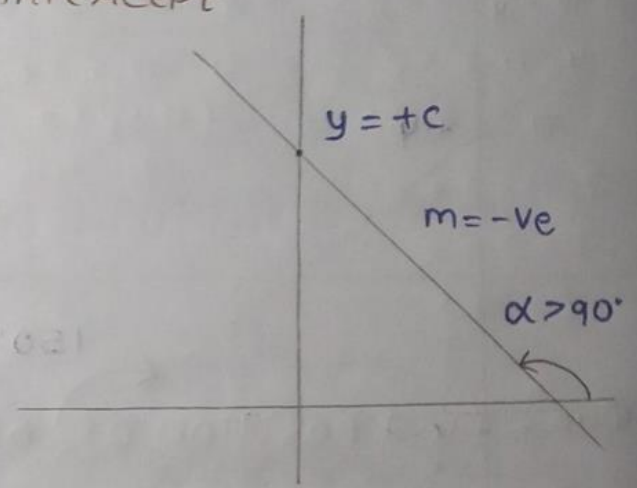 y = +c
m = -ve
α > 90°